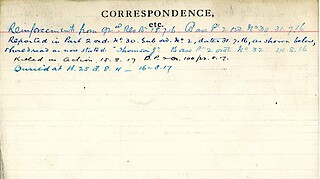 CORRESPONDENCE,
etc.
Reinforcement from Res. Bn 1·8·76 Base Pt 2 ord. No 30 31.7.16
Reported in Part 2 ord. No. 30. Sub ord. No. 2, dated 31.7.16, as shown below,
should read as now stated. "Thomson J." Base Pt 2 ord. No 32 14.8.16
Killed in Action, 15.8.17 B.P. 2 or. 100
Buried at H.25 8.4 — 16-8.17